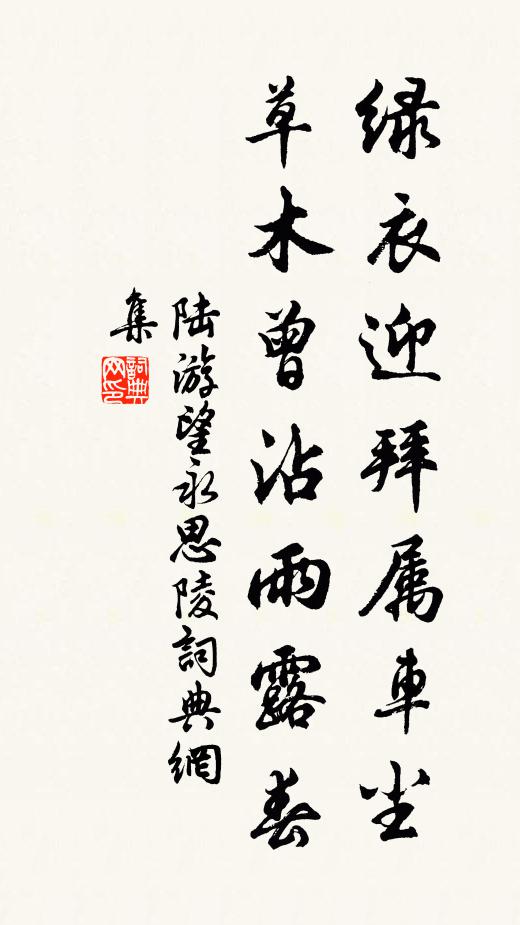 绿衣迎拜属車尘
草木曾沾雨露春
陆游望永思陵詞典網
集
詞典
网印